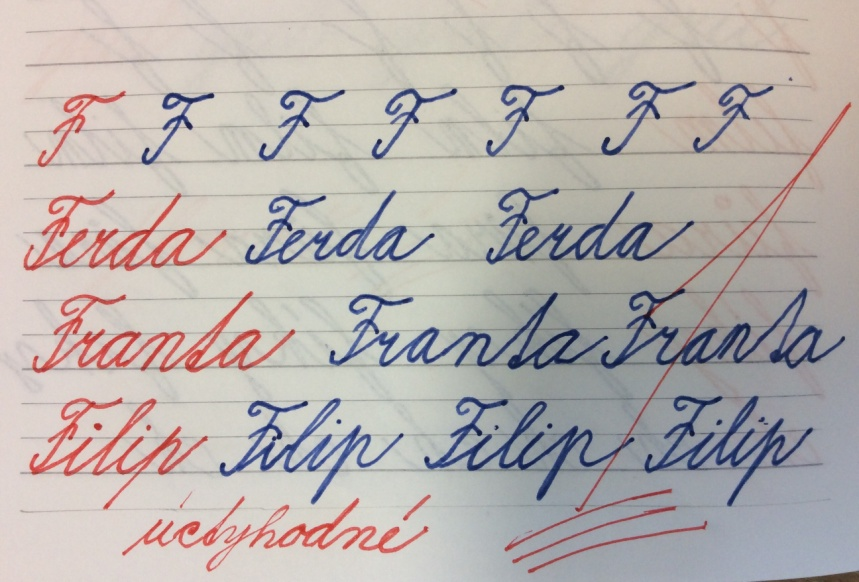 F F F F F F F
Ferda Ferda Ferda
Franta Franta Franta
Filip Filip Filip Filip
úctyhodné